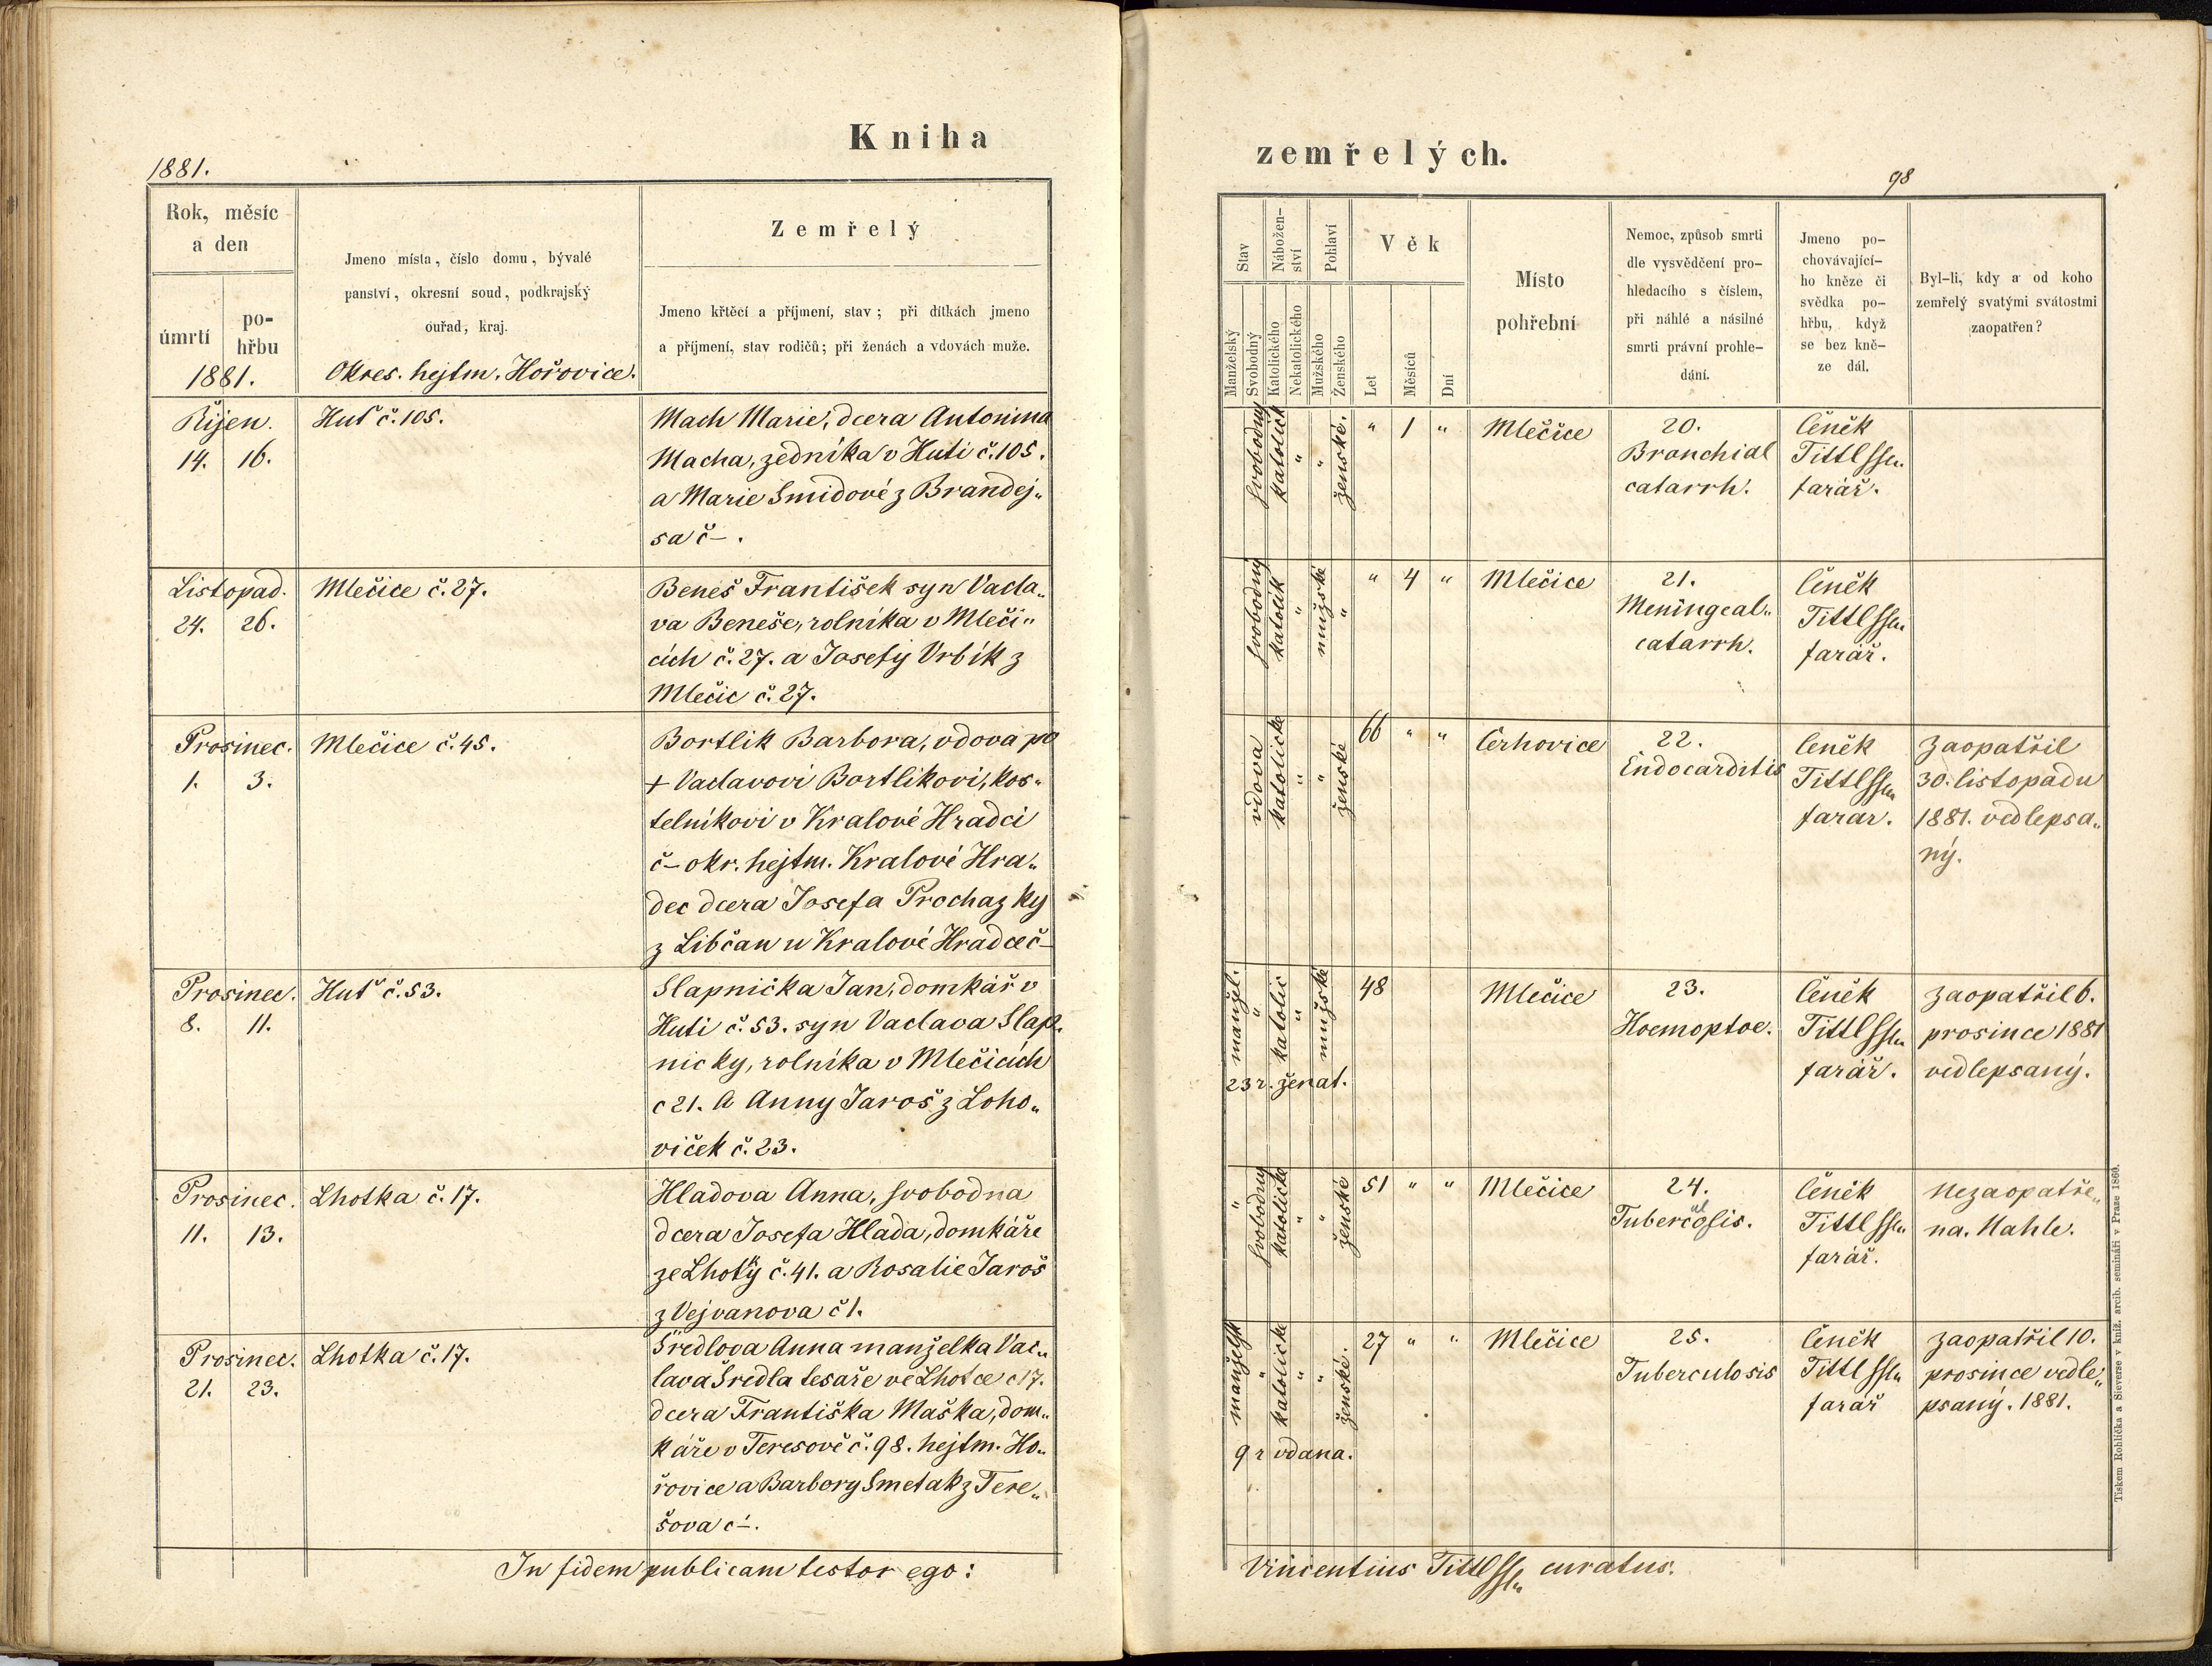 Kniha
1881.
Rok, měsíc
a den
úmrtí
po-
hřbu
1881.
Jmeno místa, číslo domu, bývalé
panství, okresní soud, podkrajský
ouřad, kraj.
Okres. hejtm. Hořovice.
Zemřelý
Jmeno křtěcí a příjmení, stav; při dítkách jmeno
a příjmení, stav rodičů; při ženách a vdovách muže.
Říjen.
14. 16.
Huť č. 105.
Mach Marie, dcera Antonina
Macha, zedníka v Huti č. 105.
a Marie Smidové z Brandej„
sa č – .
Listopad.
24. 26.
Mlečice č. 27.
Beneš František syn Vacla„
va Beneše, rolníka v Mleči„
cích č. 27. a Josefy Vrbík z
Mlečic č. 27.
Prosinec.
1. 3.
Mlečice č. 45.
Bortlik Barbora, vdova po
+ Vaclavovi Bortlikovi, kos„
telníkovi v Kralové Hradci
č – okr. hejtm. Kralové Hra„
dec dcera Josefa Prochazky
z Libčan u Kralové Hradce č –
Prosinec.
8. 11.
Huť č. 53.
Slapnička Jan, domkář v
Huti č. 53. syn Vaclava Slap„
nicky, rolníka v Mlečicích
c 21. A Anny Jaroš z Loho„
viček č. 23.
Prosinec.
11. 13.
Lhotka č. 17.
Hladova Anna, svobodna
dcera Josefa Hlada, domkáře
ze Lhoty č. 41. a Rosalie Jaroš
z Vejvanova č 1.
Prosinec.
21. 23.
Lhotka č. 17.
Šredlova Anna manželka Vac„
lava Šredla tesaře ve Lhotce c 17.
dcera Františka Maška, dom„
káře v Teresově č. 98. hejtm. Ho„
řovice a Barbory Smetak z Tere„
šova c –.
In fidem publicam testor ego:
zemřelých.
98
Stav
Nábožen-
ství
Pohlaví
Věk
Manželský
Svobodný
Katolického
Nekatolického
Mužského
Ženského
Let
Měsíců
Dní
Místo
pohřební
Nemoc, způsob smrti
dle vysvědčení pro-
hledacího s číslem,
při náhlé a násilné
smrti právní prohle-
dání.
Jmeno po-
chovávající-
ho kněze či
svědka po-
hřbu, když
se bez kně-
ze dál.
Byl-li, kdy a od koho
zemřelý svatými svátostmi
zaopatřen?
svobodny
katolick
„
„
ženské.
„ 1 „
Mlečice
20.
Bronchial
catarrh.
Čeněk
Tittl
farář.
svobodný
katolik
„
mužské
„
„ 4 „
Mlečice
21.
Meningeal„
catarrh.
Čeněk
Tittl
farář.
vdova
katolicke
„
„
ženské
66 „ „
Cerhovice
22.
Endocarditis
Čeněk
Tittl
farar.
Zaopatřil
30. listopadu
1881. vedlepsa„
ný.
manžel.
„
katolic
„
mužské
23 r. ženat.
48
Mlečice
23.
Hoemoptoe.
Čeněk
Tittl
farář.
zaopatřil 6.
prosince 1881
vedlepsaný.
„
svobodny
katolicke
„
„
ženské
51 „ „
Mlečice
24.
Tuberculosis.
Čeněk
Tittl
farář.
Nezaopatře„
na. Nahle.
manželsk
„
katolicke
„
„
ženské.
9 r vdana.
27 „ „
Mlečice
25.
Tuberculosis
Čeněk
Tittl
farář
zaopatřil 10.
prosince vedle„
psaný. 1881.
Vincentius Tittl curatus.
Tiskem Rohlíčka a Sieverse v kníž. arcib. semináři v Praze 1860.